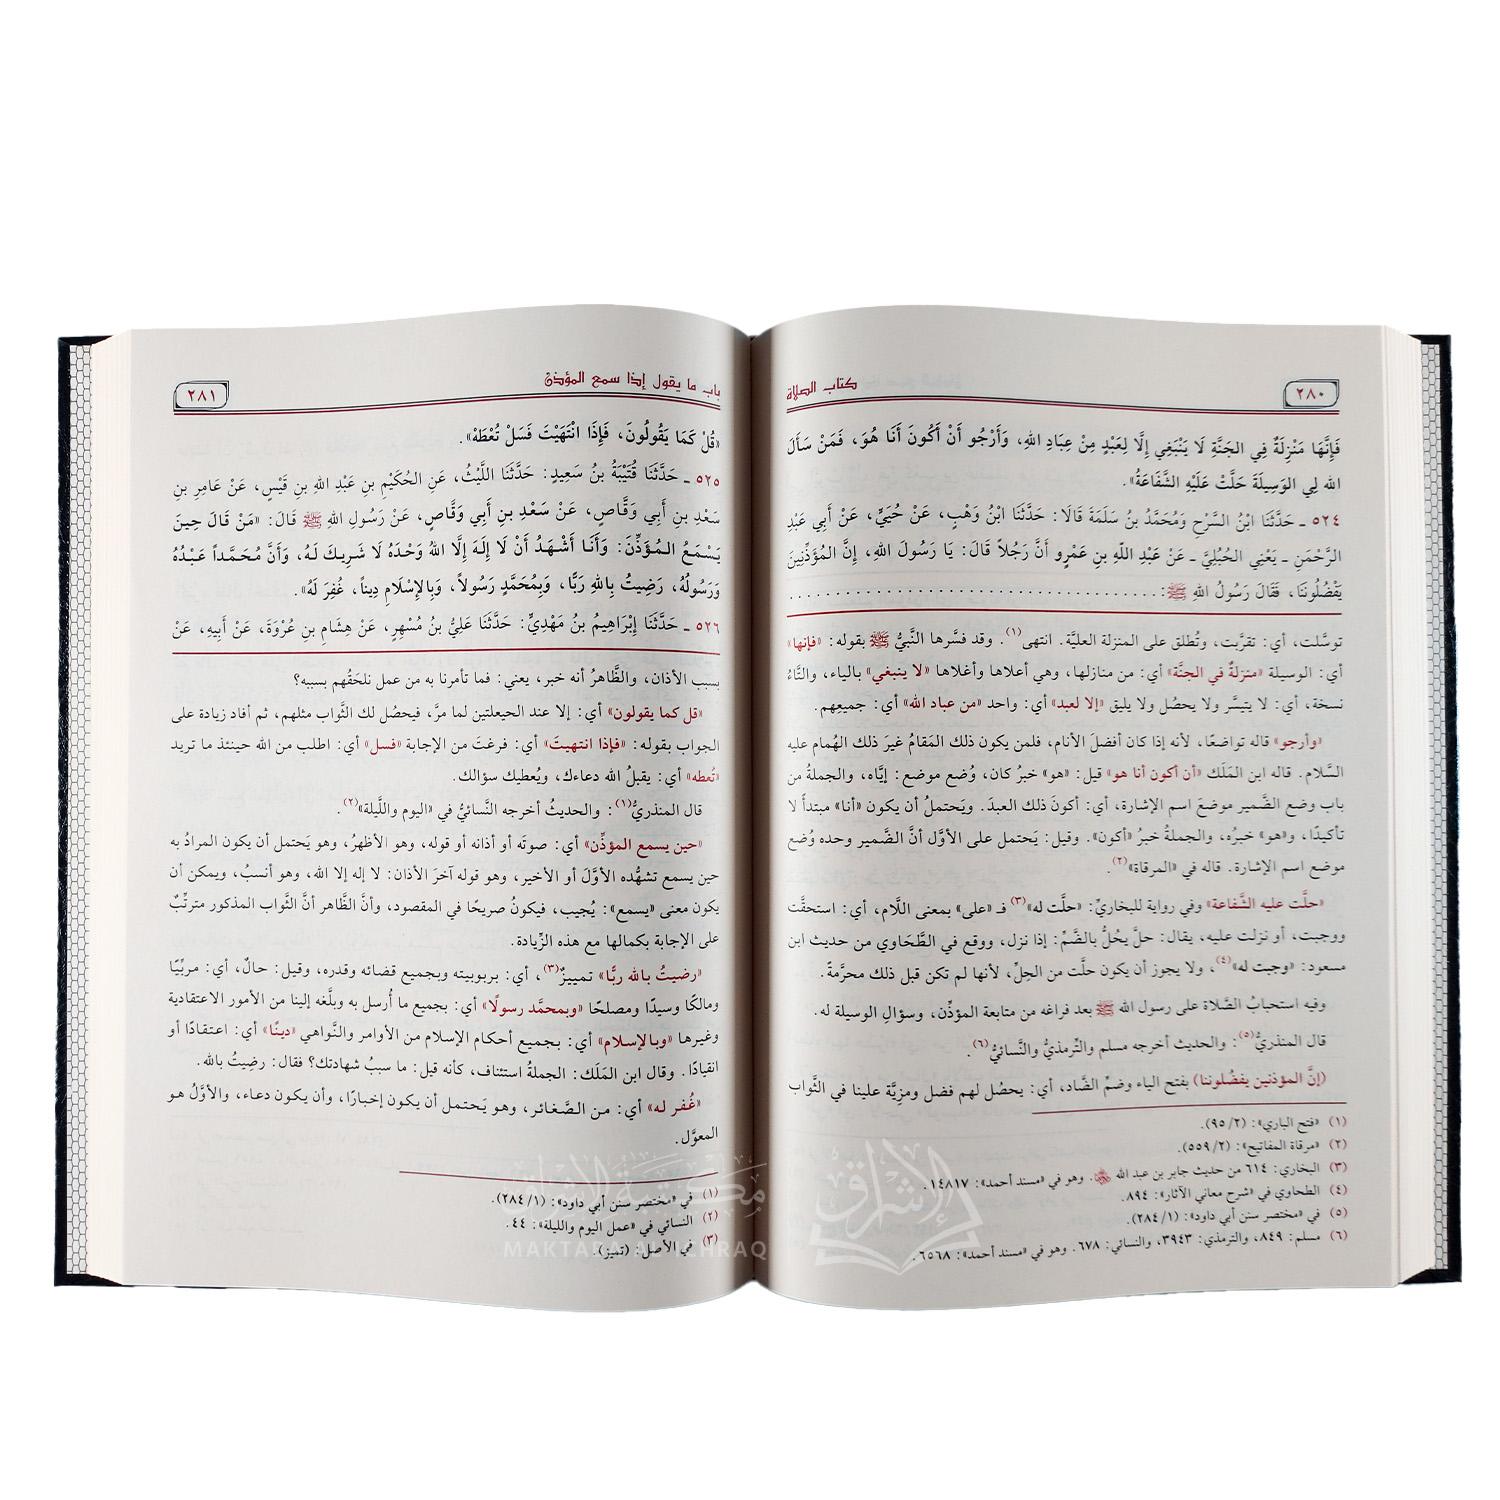 ٢٨٠
كتاب الصلاة
فَإِنَّهَا مَنْزِلَةٌ فِي الجَنَّةِ لَا يَنْبَغِي إِلَّا لِعَبْدٍ مِنْ عِبَادِ اللهِ، وَأَرْجُو أَنْ أَكُونَ أَنَا هُوَ، فَمَنْ سَأَلَ
الله لِي الوَسِيلَةَ حَلَّتْ عَلَيْهِ الشَّفَاعَةُ».
٥٢٤ ـ حَدَّثَنَا ابْنُ السَّرْحِ وَمُحَمَّدُ بنُ سَلَمَةَ قَالَا: حَدَّثَنَا ابْنُ وَهْبٍ، عَنْ حُيَيٍّ، عَنْ أَبِي عَبْدِ
الرَّحْمَنِ ـ يَعْنِي الحُبُلِيَّ ـ عَنْ عَبْدِ اللَّهِ بنِ عَمْرٍو أَنَّ رَجُلاً قَالَ: يَا رَسُولَ اللهِ، إِنَّ المُؤَذِّنِينَ
يَفْضُلُونَنَا، فَقَالَ رَسُولُ اللهِ ﷺ: . . . . . . . . . . . . . . . . . . . . . . . . . . . . . . . . . . . . . .
توسَّلت، أي: تقرَّبت، وتُطلق على المنزلة العليَّة. انتهى(١). وقد فسَّرها النَّبيُّ ﷺ بقوله: «فإنها»
أي: الوسيلة «منزلةٌ في الجنَّة» أي: من منازلها، وهي أعلاها وأغلاها «لا ينبغي» بالياء، والتَّاءُ
نسخة، أي: لا يتيسَّر ولا يحصُل ولا يليق «إلا لعبد» أي: واحد «من عباد الله» أي: جميعِهم.
«وأرجو» قاله تواضعًا، لأنه إذا كان أفضلَ الأنام، فلمن يكون ذلك المَقامُ غيرَ ذلك الهُمام عليه
السَّلام. قاله ابن المَلَك «أن أكون أنا هو» قيل: «هو» خبرُ كان، وُضع موضع: إيَّاه، والجملةُ من
باب وضع الضَّمير موضعَ اسم الإشارة، أي: أكونَ ذلك العبدَ. ويَحتملُ أن يكون «أنا» مبتدأ لا
تأكيدًا، و«هو» خبرُه، والجملةُ خبرُ «أكون». وقيل: يَحتمل على الأوَّل أنَّ الضَّمير وحده وُضع
موضع اسم الإشارة. قاله في «المرقاة»(٢).
«حلَّت عليه الشَّفاعة» وفي رواية للبخاريِّ: «حلَّت له»(٣) فـ «على» بمعنى اللَّام، أي: استحقَّت
ووجبت، أو نزلت عليه، يقال: حلَّ يحُلُّ بالضَّمِّ: إذا نزل، ووقع في الطَّحَاوي من حديث ابن
مسعود: «وجبت له»(٤)، ولا يجوز أن يكون حلَّت من الحِلِّ، لأنها لم تكن قبل ذلك محرَّمةً.
وفيه استحبابُ الصَّلاة على رسول الله ﷺ بعد فراغه من متابعة المؤذِّن، وسؤالِ الوسيلة له.
قال المنذريُّ(٥): والحديث أخرجه مسلم والتِّرمذيُّ والنَّسائيُّ(٦).
(إنَّ المؤذنين يفضُلوننا) بفتح الياء وضمِّ الضَّاد، أي: يحصُل لهم فضل ومزيَّة علينا في الثَّواب
(١) «فتح الباري»: (٢/ ٩٥).
(٢) «مرقاة المفاتيح»: (٢/ ٥٥٩).
(٣) البخاري: ٦١٤ من حديث جابر بن عبد الله . وهو في «مسند أحمد»: ١٤٨١٧.
(٤) الطحاوي في «شرح معاني الآثار»: ٨٩٤.
(٥) في «مختصر سنن أبي داود»: (١/ ٢٨٤).
(٦) مسلم: ٨٤٩، والترمذي: ٣٩٤٣، والنسائي: ٦٧٨. وهو في «مسند أحمد»: ٦٥٦٨.
باب ما يقول إذا سمع المؤذن
٢٨١
«قُلْ كَمَا يَقُولُونَ، فَإِذَا انْتَهَيْتَ فَسَلْ تُعْطَهْ».
٥٢٥ ـ حَدَّثَنَا قُتَيْبَةُ بنُ سَعِيدٍ: حَدَّثَنَا اللَّيْثُ، عَنِ الحُكَيْمِ بنِ عَبْدِ اللهِ بنِ قَيْسٍ، عَنْ عَامِرِ بنِ
سَعْدِ بنِ أَبِي وَقَّاصٍ، عَنْ سَعْدِ بنِ أَبِي وَقَّاصٍ، عَنْ رَسُولِ اللهِ ﷺ قَالَ: «مَنْ قَالَ حِينَ
يَسْمَعُ المُؤَذِّنَ: وَأَنَا أَشْهَدُ أَنْ لَا إِلَهَ إِلَّا اللهُ وَحْدَهُ لَا شَرِيكَ لَهُ، وَأَنَّ مُحَمَّداً عَبْدُهُ
وَرَسُولُهُ، رَضِيتُ بِاللهِ رَبًّا، وَبِمُحَمَّدٍ رَسُولاً، وَبِالإِسْلَامِ دِيناً، غُفِرَ لَهُ».
٥٢٦ ـ حَدَّثَنَا إِبْرَاهِيمُ بنُ مَهْدِيٍّ: حَدَّثَنَا عَلِيُّ بنُ مُسْهِرٍ، عَنْ هِشَامِ بنِ عُرْوَةَ، عَنْ أَبِيهِ، عَنْ
بسبب الأذان، والظَّاهرُ أنه خبر، يعني: فما تأمرنا به من عمل نلحَقُهم بسببه؟
«قل كما يقولون» أي: إلا عند الحيعلتين لما مرَّ، فيحصُل لك الثَّواب مثلهم، ثم أفاد زيادة على
الجواب بقوله: «فإذا انتهيتَ» أي: فرغتَ من الإجابة «فسل» أي: اطلب من الله حينئذ ما تريد
«تُعطه» أي: يقبلُ الله دعاءك، ويُعطيك سؤالك.
قال المنذريُّ(١): والحديثُ أخرجه النَّسائيُّ في «اليوم واللَّيلة»(٢).
«حين يسمع المؤذِّن» أي: صوتَه أو أذانه أو قوله، وهو الأظهرُ، وهو يَحتمل أن يكون المرادُ به
حين يسمع تشهُّده الأوَّلَ أو الأخير، وهو قوله آخرَ الأذان: لا إله إلا الله، وهو أنسبُ، ويمكن أن
يكون معنى «يسمع»: يُجيب، فيكونُ صريحًا في المقصود، وأنَّ الظَّاهر أنَّ الثَّواب المذكور مترتِّبٌ
على الإجابة بكمالها مع هذه الزِّيادة.
«رضيتُ بالله ربًّا» تمييزٌ(٣)، أي: بربوبيته وبجميع قضائه وقدره، وقيل: حالٌ، أي: مربِّيًا
ومالكًا وسيدًا ومصلحًا «وبمحمَّد رسولًا» أي: بجميع ما أُرسل به وبلَّغه إلينا من الأمور الاعتقادية
وغيرها «وبالإسلام» أي: بجميع أحكام الإسلام من الأوامر والنَّواهي «دينًا» أي: اعتقادًا أو
انقيادًا. وقال ابن المَلَك: الجملةُ استئناف، كأنه قيل: ما سببُ شهادتك؟ فقال: رضيتُ بالله.
«غُفر له» أي: من الصَّغائر، وهو يَحتمل أن يكون إخبارًا، وأن يكون دعاء، والأوَّل هو
المعوَّل.
(١) في «مختصر سنن أبي داود»: (١/ ٢٨٤).
(٢) النسائي في «عمل اليوم والليلة»: ٤٤.
(٣) في الأصل: (تميز).
مكتبة الإشراق
MAKTABA AL-ICHRAQ
الإشراق